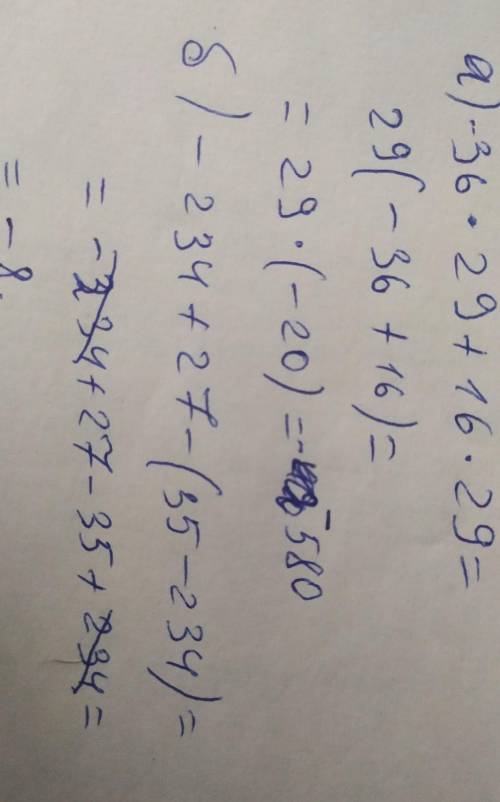 а) -36 · 29 + 16 · 29 =
29(-36 + 16) =
= 29 · (-20) = -580
б) -234 + 27 - (35 - 234) =
= -234 + 27 - 35 + 234 =
= -8.